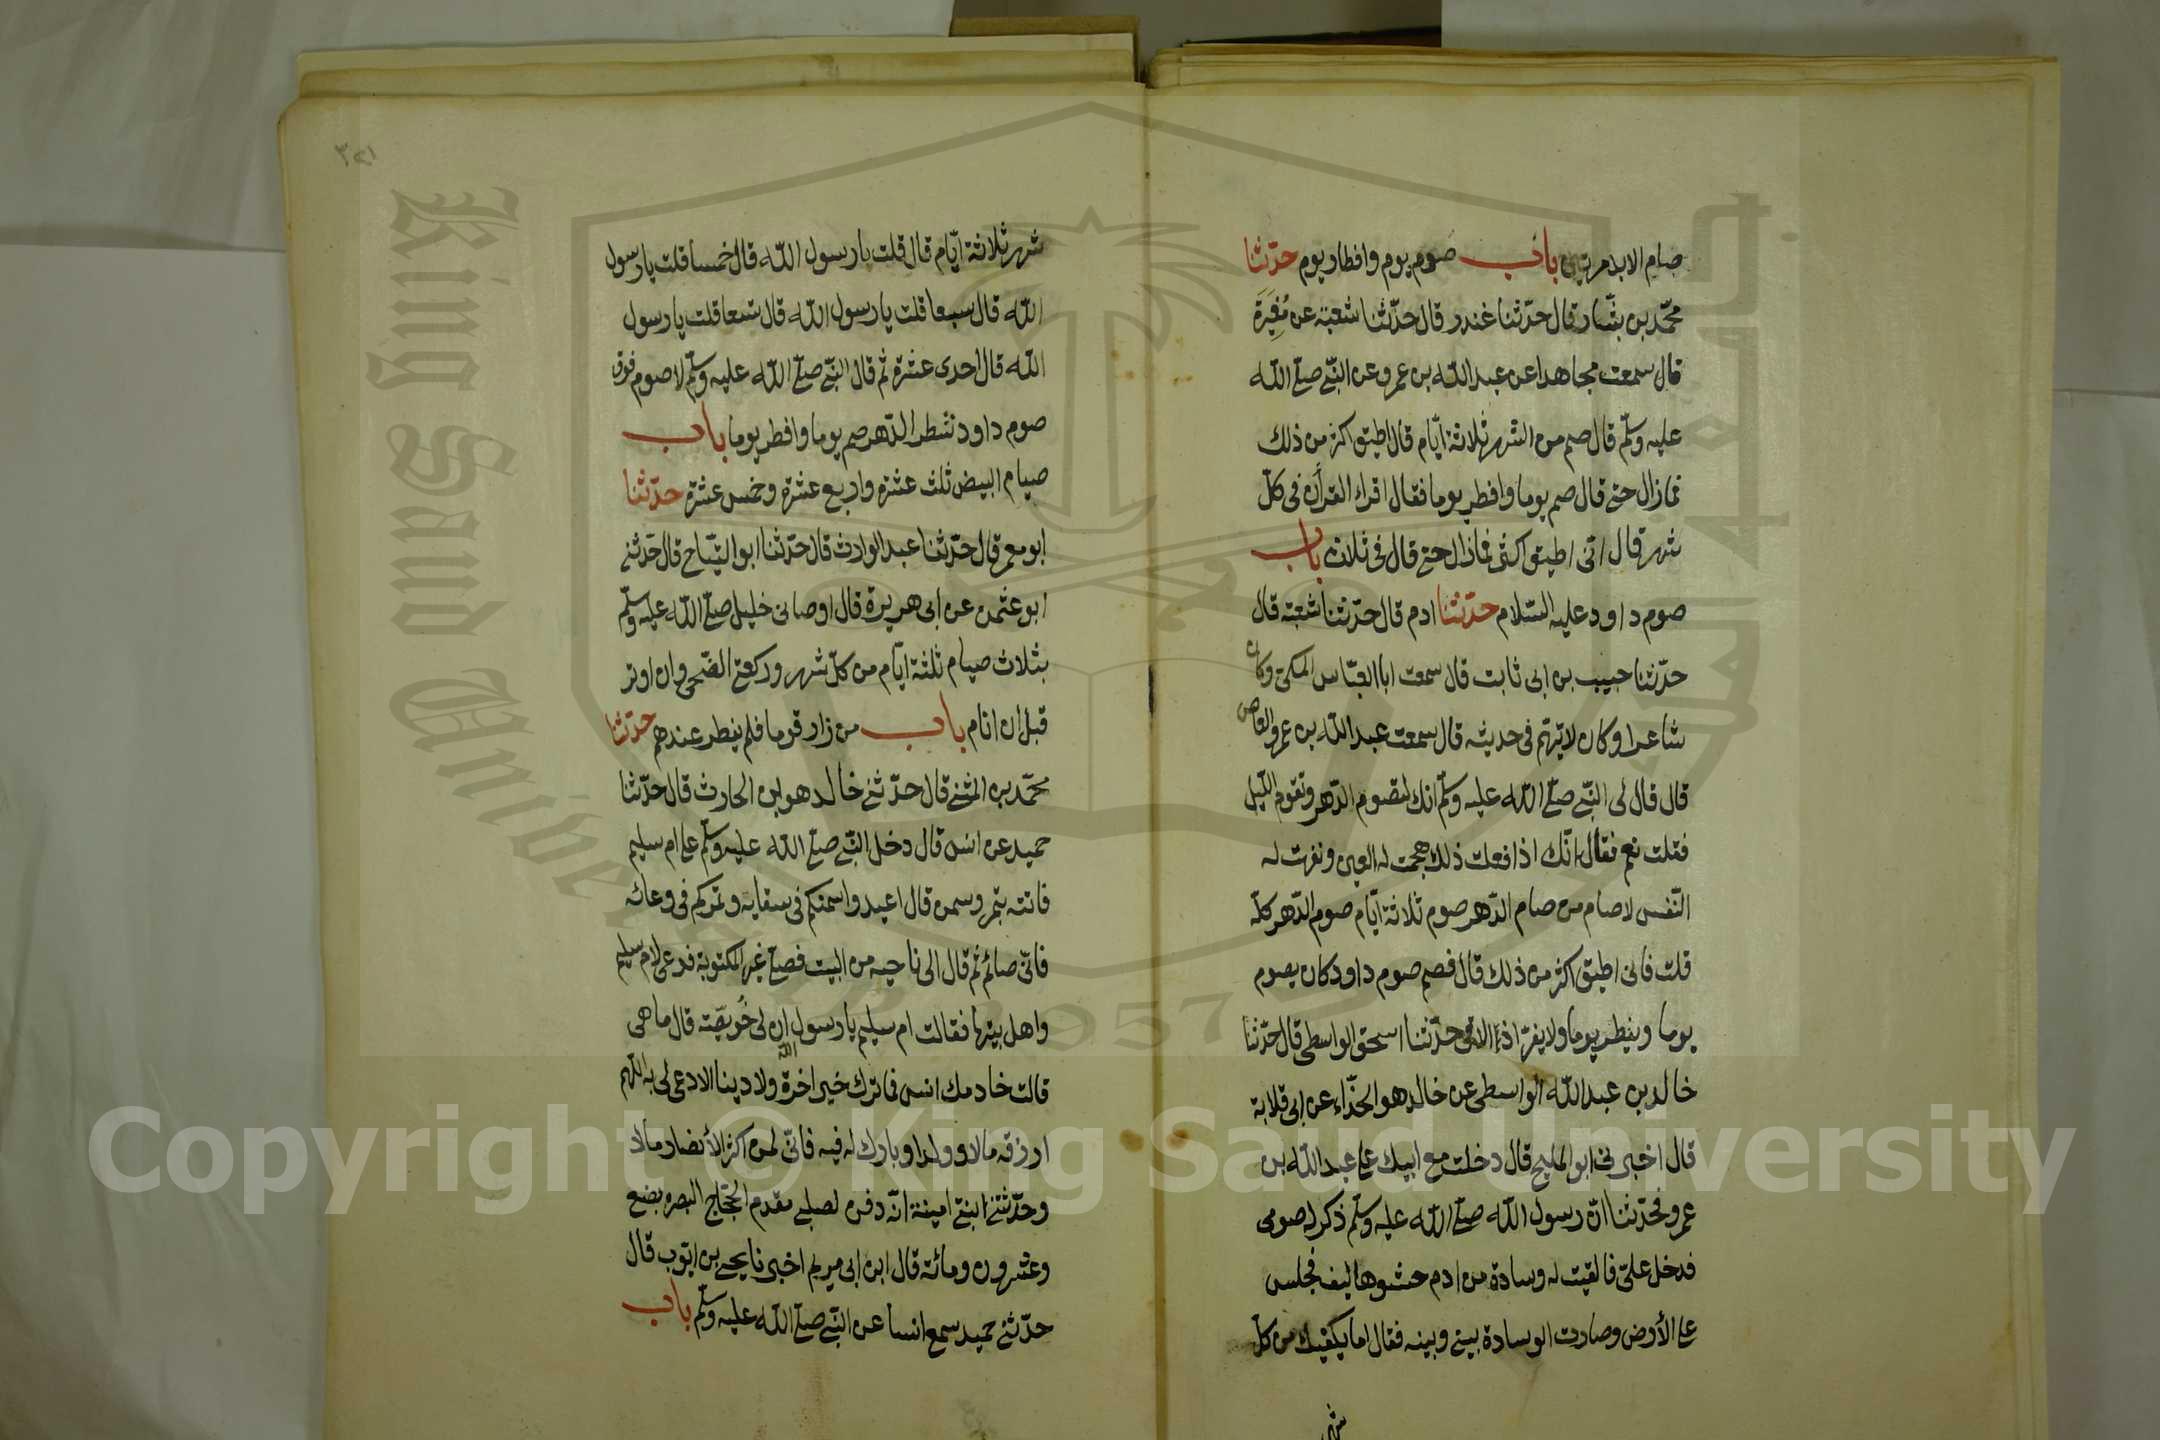 صام الابد مرتين باب صوم يوم وافطار يوم حدّثنا
محمّد بن بشّار قال حدّثنا غندر قال حدّثنا شعبة عن مُغِيَرَة
قال سمعت مجاهدا عن عبد اللّه بن عمرو عن النبّى صلّى اللّه
عليه وسلّم قال صم من الشهر ثلاثة ايّام قال اطيق اكثر من ذلك
فما زال حتى قال صم يوما وافطر يوما فقال اقراء القرأن فى كلّ
شهر قال انّى اطيق اكثر فما زال حتى قال فى ثلاث باب
صوم داود عليه السّلام حدّثنا ادم قال حدّثنا شعبة قال
حدّثنا حبيب بن ابى ثابت قال سمعت ابا العبّاس المكىّ وكان
شاعرا وكان لا يتّهم فى حديثه قال سمعت عبد اللّه بن عمرو العاص
قال قال لى النبّى صلّى اللّه عليه وسلّم انك لتصوم الدّهر وتقوم اللّيل
فقلت نعم فقال انّك اذا فعلت ذلك هجمت له العين ونفهت له
النّفس لا صام من صام الدّهر صوم ثلاثة ايّام صوم الدّهر كلّه
قلت فانى اطيق اكثر من ذلك قال فصم صوم داود كان يصوم
يوما ويفطر يوما ولا يفرّ اذا لاقى حدّثنا اسحق الواسطى قال حدّثنا
خالد بن عبد اللّه الواسطى عن خالد هو الحذّاء عن ابى قلابة
قال اخبرنى ابو المليح قال دخلت مع ابيك على عبد اللّه بن
عمرو فحدّثنا انّ رسول اللّه صلّى اللّه عليه وسلّم ذكر له صومى
فدخل علىّ فالقيت له وسادة من ادم حشوها ليف فجلس
على الأرض وصارت الوسادة بينى وبينه فقال اما يكفيك من كلّ
شهر
٣٢١
شهر ثلاثة ايّام قال قلت يا رسول اللّه قال خمسا قلت يا رسول
اللّه قال سبعا قلت يا رسول اللّه قال تسعا قلت يا رسول
اللّه قال احدى عشرة ثم قال النبّى صلّى اللّه عليه وسلّم لا صوم فوق
صوم داود شطر الدّهر صم يوما وافطر يوما باب
صيام البيض ثلث عشرة واربع عشرة وخمس عشرة حدّثنا
ابو معمر قال حدّثنا عبد الوارث قال حدّثنا ابو التيّاح قال حدّثنى
ابو عثمن عن ابى هريرة قال اوصانى خليلى صلّى اللّه عليه وسلّم
بثلاث صيام ثلثة ايّام من كلّ شهر وركعتى الضّحى وان اوتر
قبل ان انام باب من زار قوما فلم يفطر عندهم حدّثنا
محمّد بن المثنى قال حدّثنى خالد هو ابن الحارث قال حدّثنا
حميد عن انس قال دخل النبّى صلّى اللّه عليه وسلّم على ام سليم
فاتته بتمر وسمن قال اعيدوا سمنكم فى سقايه وتمركم فى وعائه
فانّى صائم ثم قال الى ناحيه من البيت فصلى غير المكتوبة فدعى لام سليم
واهل بيتها فقالت ام سليم يا رسول اللّه ان لى خُويصّة قال ما هى
قالت خادمك انس فما ترك خير اخرة ولا دينا الا دعى لى به اللّهم
ارزقه مالا وولدا وبارك له فيه فانّى لمن اكثر الأنصار مالا
وحدّثتنى ابنتى امينة انّه دفن لصلبى مقدم الحجّاج البصره بضع
وعشرون ومائة قال ابن ابى مريم اخبرنا يحيى بن ايّوب قال
حدّثنى حميد سمع انسا عن النبّى صلّى اللّه عليه وسلّم باب
King Saud University
1957
Copyright © King Saud University